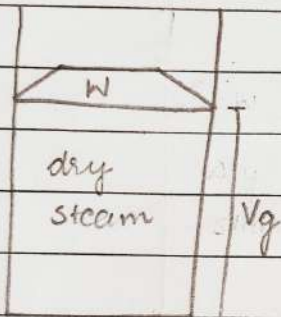 W
dry
steam
Vg